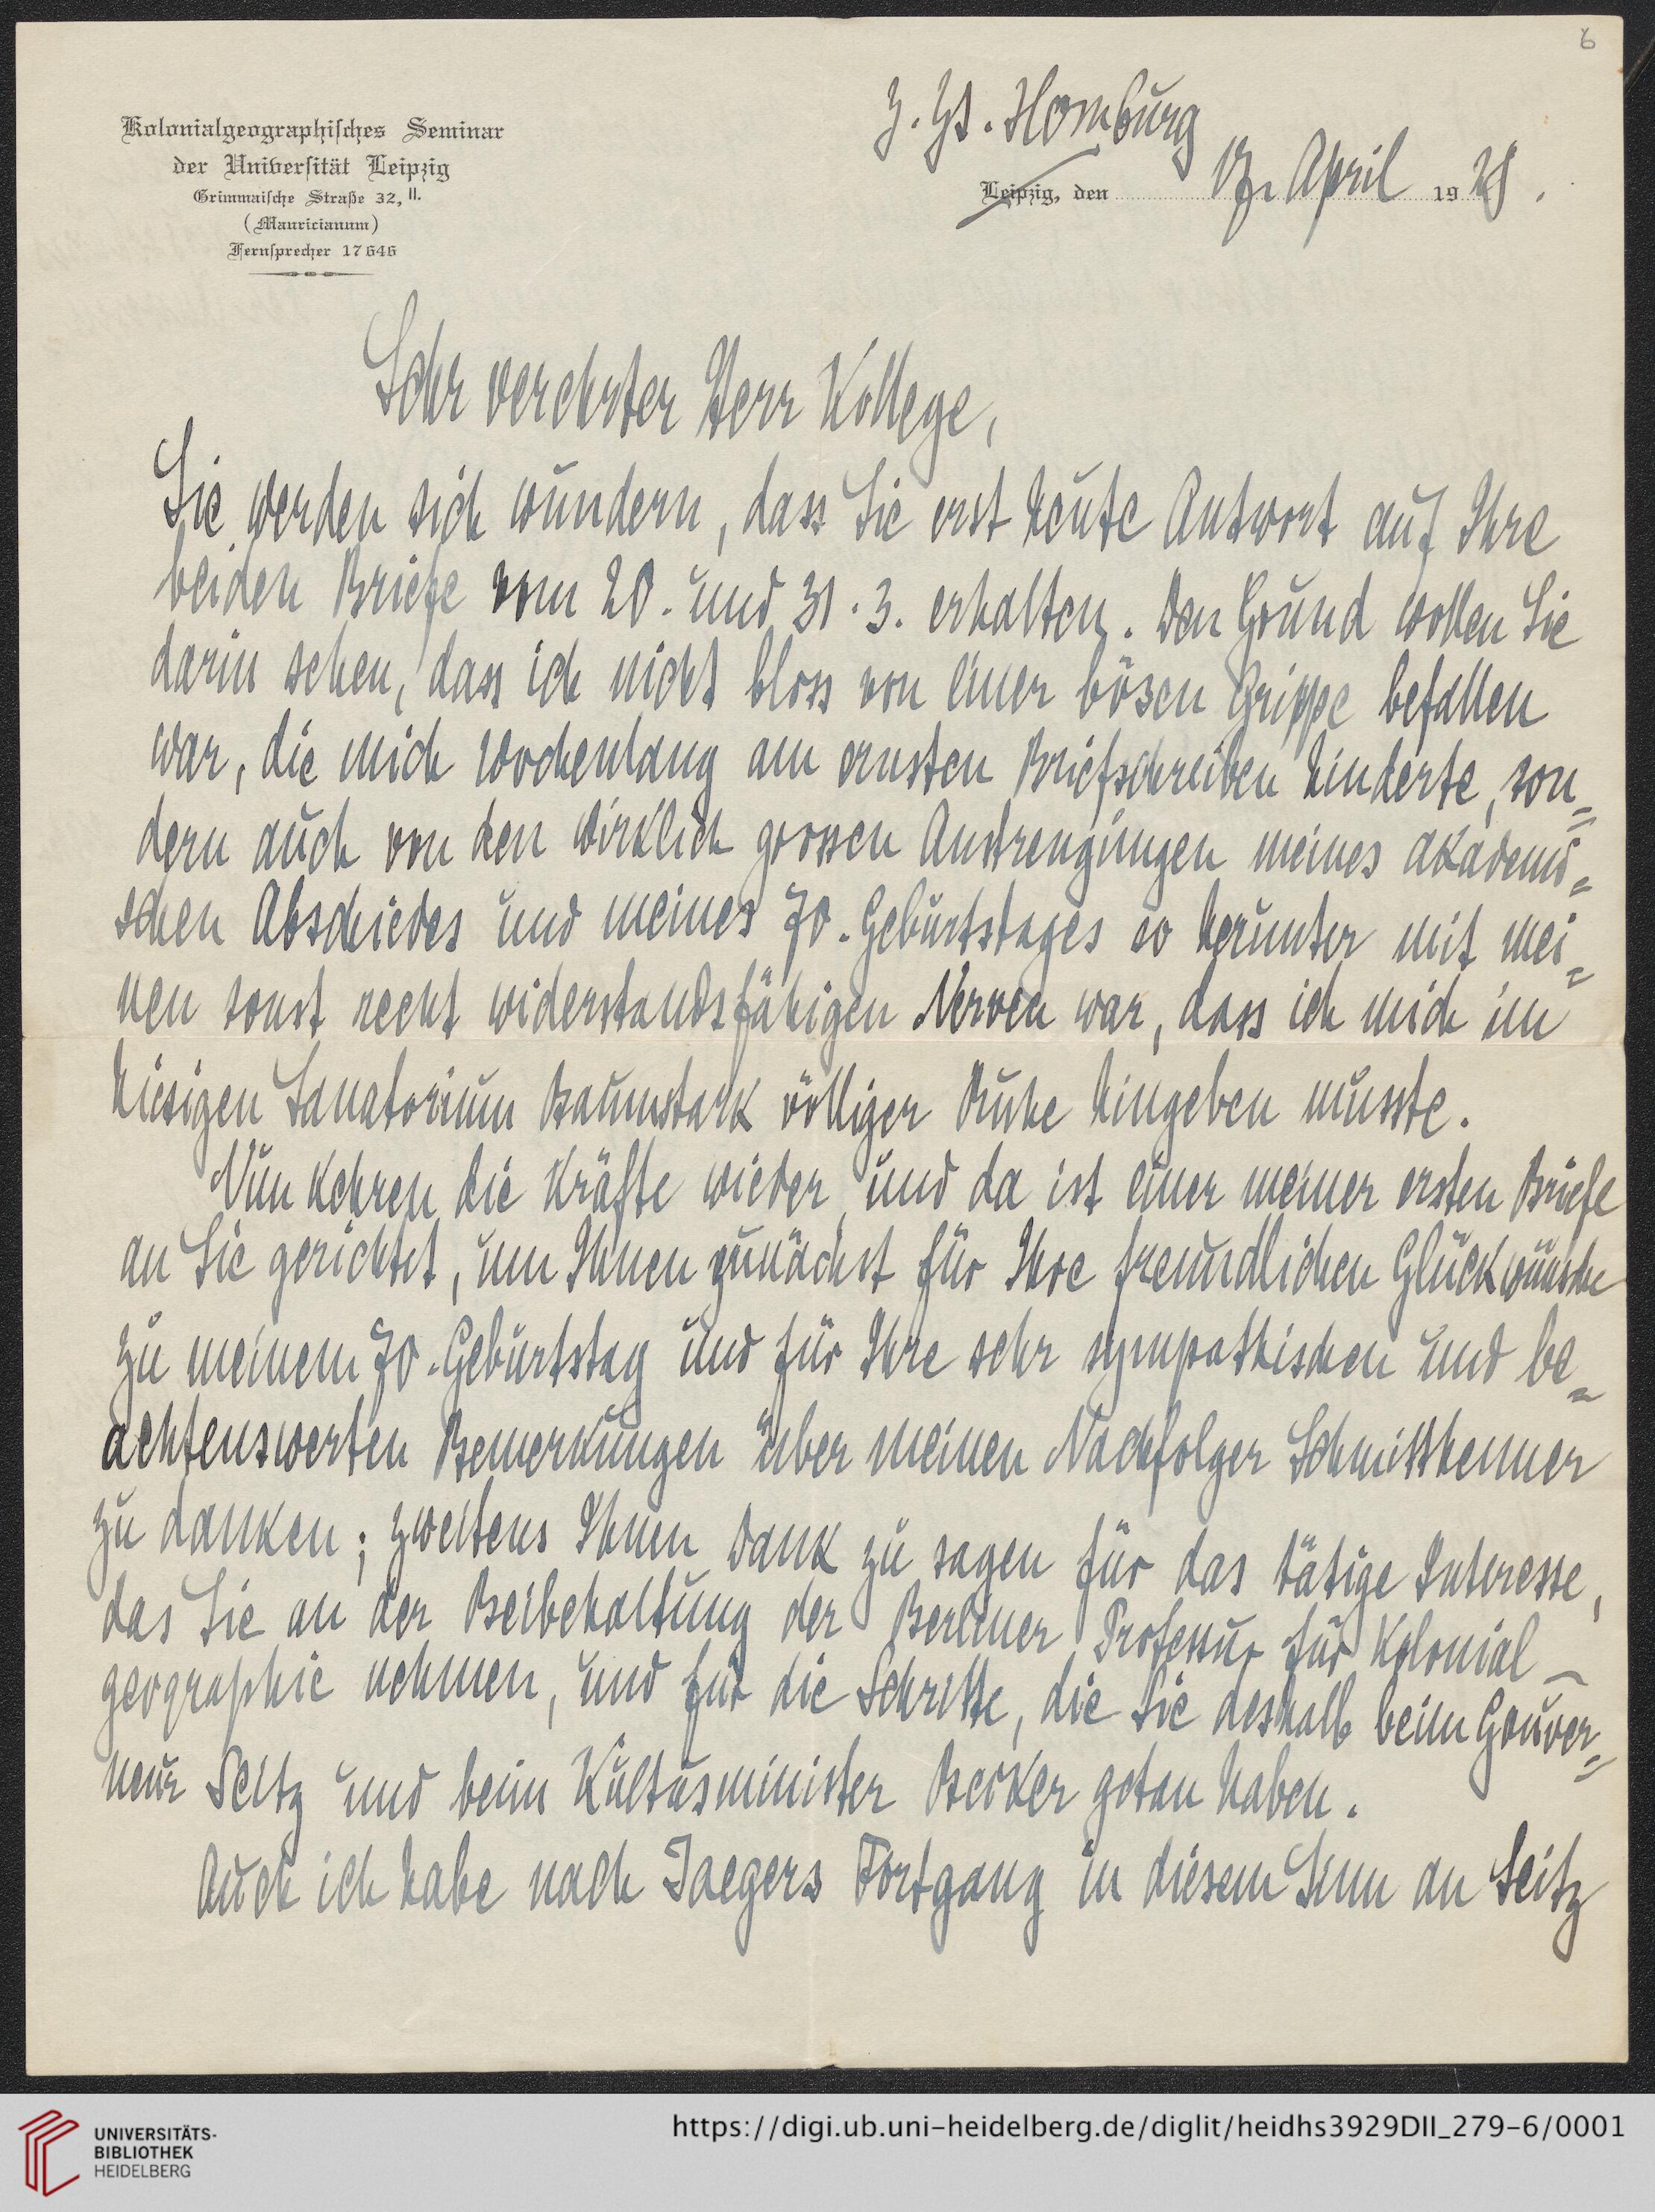 6
Kolonialgeographisches Seminar
der Universität Leipzig
Grimmaische Straße 32, II.
(Mauricianum)
Fernsprecher 17646
z. Zt. Homburg
Leipzig, den 17. April 1928.
Sehr verehrter Herr Kollege,
Sie werden sich wundern, dass Sie erst heute Antwort auf Ihre
beiden Briefe vom 20. und 31.3. erhalten. Den Grund wollen Sie
darin sehen, dass ich nicht bloss von einer bösen Grippe befallen
war, die mich wochenlang am ernsten Briefschreiben hinderte, son=
dern auch von den wirklich grossen Anstrengungen meines akademi=
schen Abschiedes und meines 70. Geburtstages so herunter mit mei=
nen sonst recht widerstandsfähigen Nerven war, dass ich mich im
hiesigen Sanatorium Baumstark völliger Ruhe hingeben musste.
Nun kehren die Kräfte wieder, und da ist einer meiner ersten Briefe
an Sie gerichtet, um Ihnen zunächst für Ihre freundlichen Glückwünsche
zu meinem 70. Geburtstag und für Ihre sehr sympathischen und be=
achtenswerten Bemerkungen über meinen Nachfolger Schmitthenner
zu danken; zweitens Ihnen Dank zu sagen für das tätige Interesse,
das Sie an der Beibehaltung der Berliner Professur für Kolonial-
geographie nehmen, und für die Schritte, die Sie deshalb beim Gouver=
neur Seitz und beim Kultusminister Becker getan haben.
Auch ich habe nach Jaegers Fortgang in diesem Sinn an Seitz
UNIVERSITÄTS-
BIBLIOTHEK
HEIDELBERG
https://digi.ub.uni-heidelberg.de/diglit/heidhs3929DII_279-6/0001